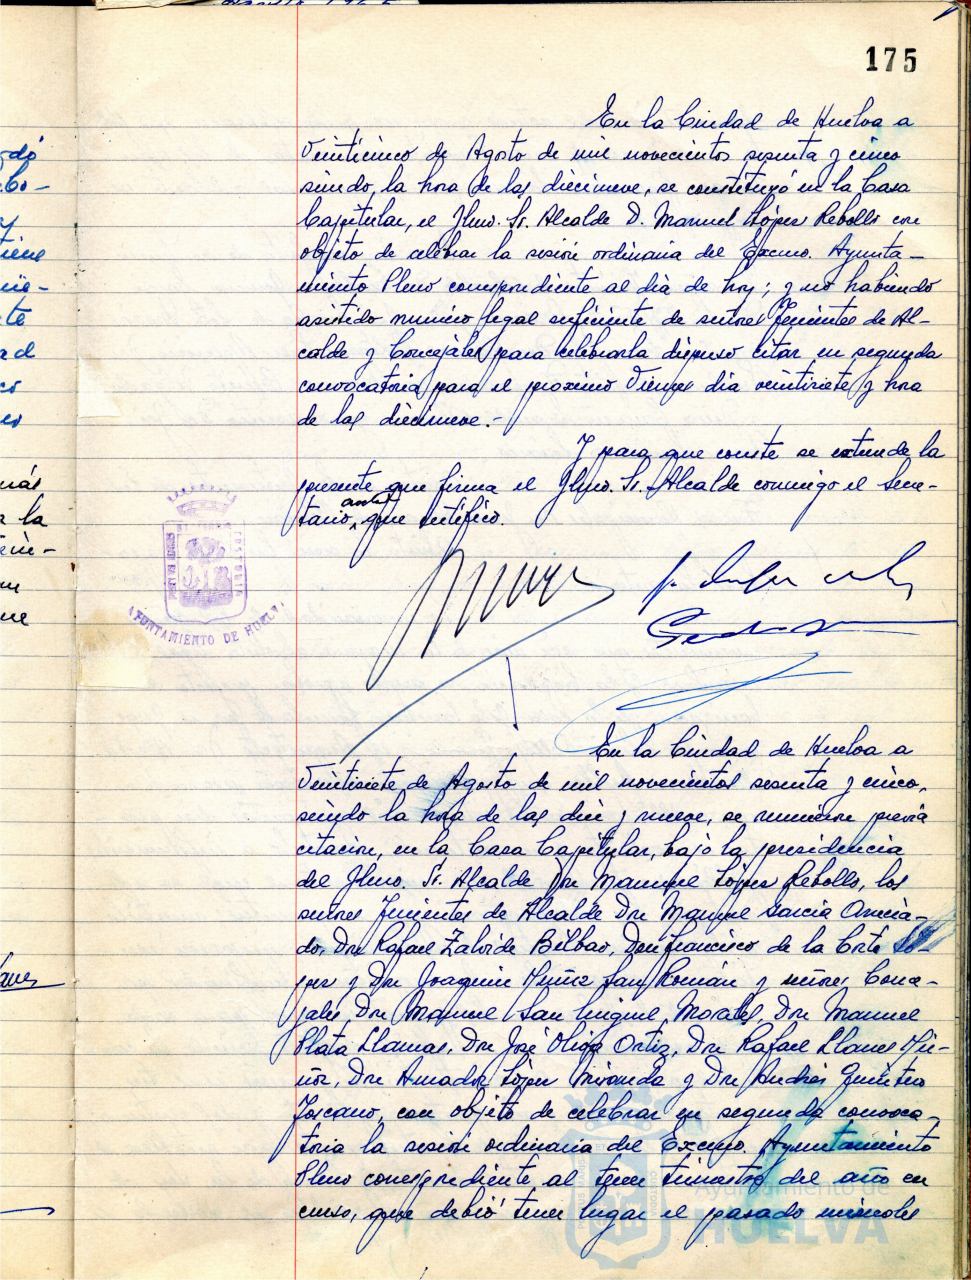 175
En la Ciudad de Huelva a
Veinticinco de Agosto de mil novecientos sesenta y cinco
siendo la hora de las diecinueve, se constituyó en la Casa
Capitular, el Ilmo. Sr. Alcalde D. Manuel López Rebollo con
objeto de celebrar la sesión ordinaria del Excmo. Ayunta-
miento Pleno correspondiente al día de hoy; y no habiendo
asistido numero legal suficiente de señores Tenientes de Al-
calde y Concejales para celebrarla dispuso citar en segunda
convocatoria para el proximo Viernes dia veintisiete y hora
de las diecinueve.-
Y para que conste se extiende la
presente que firma el Ilmo. Sr. Alcalde conmigo el Secre-
tario, que certifico.
AYUNTAMIENTO DE HUELVA
En la Ciudad de Huelva a
Veintisiete de Agosto de mil novecientos sesenta y cinco,
siendo la hora de las diez y nueve, se reunieron previa
citación, en la Casa Capitular, bajo la presidencia
del Ilmo. Sr. Alcalde Don Manuel López Rebollo, los
señores Tenientes de Alcalde Don Manuel García Arrecia-
do, Don Rafael Zalvide Bilbao, Don Francisco de la Corte Ló-
pez y Don Joaquin Muñiz San Román y señores Conce-
jales, Don Manuel San Miguel Morales, Don Manuel
Plata Llamas, Don José Oliva Ortiz, Don Rafael Llanes Mu-
ñoz, Don Amador López Miranda y Don Andrés Quintero
Toscano, con objeto de celebrar en segunda convoca-
toria la sesión ordinaria del Excmo. Ayuntamiento
Pleno correspondiente al tercer trimestre del año en
curso, que debió tener lugar el pasado miercoles
Ayuntamiento de
HUELVA